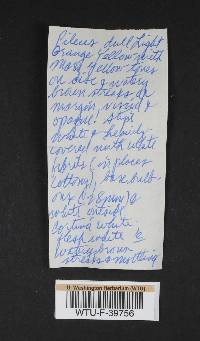 Pileus dull light
orange yellow with
more yellow tones
on disc & watery
brown streaks on
margin, viscid &
opaque! Stip
heavily
covered with white
fibrils (in places
cottony), base bulb
ous (28mm) &
white outside
cortina white.
flesh white &
watery brown
streaks & mottling
U. Washington Herbarium (WTU)
WTU-F-39756